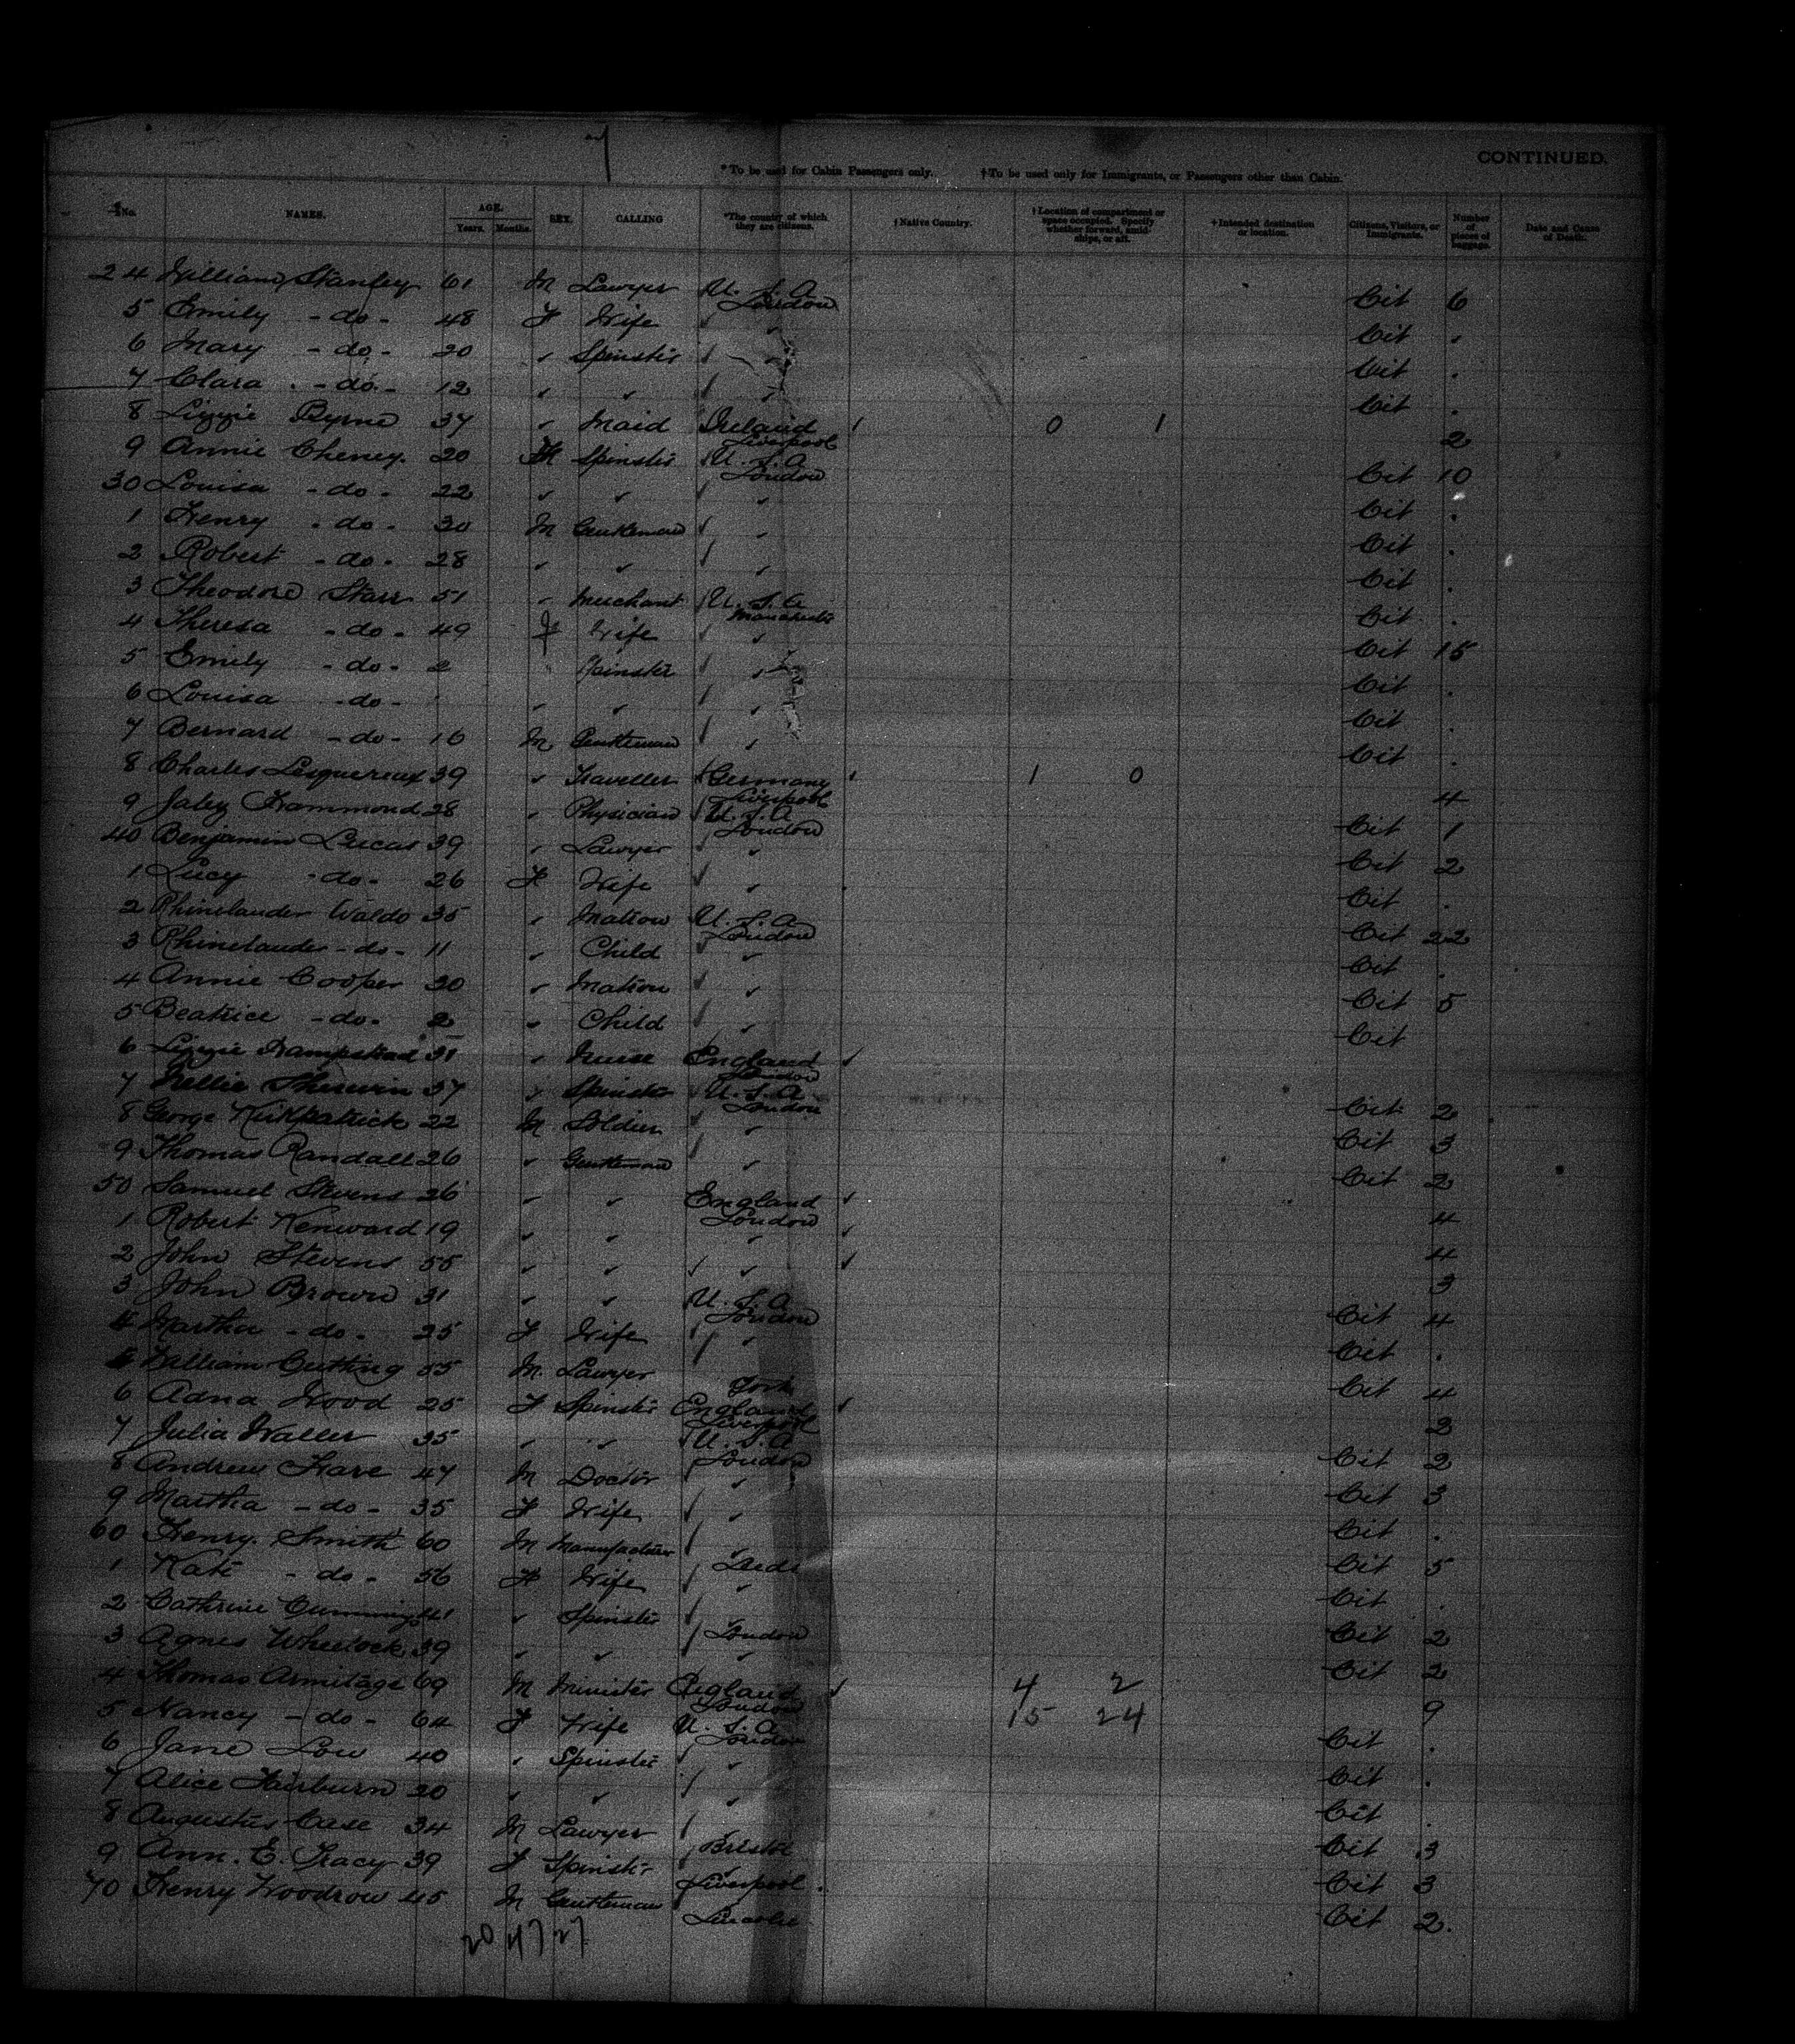 CONTINUED.
*To be used for Cabin Passengers only. †To be used only for Immigrants, or Passengers other than Cabin.
No. NAMES. AGE. Years. Months. SEX. CALLING *The country of which they are citizens. †Native Country. †Location of compartment or space occupied. Specify whether forward, amidships, or aft. †Intended destination or location. Citizens, Visitors, or Immigrants. Number of pieces of baggage. Date and Cause of Death.
24 William Stanley 61 M Lawyer U.S.A London Cit 6
5 Emily -do- 48 F Wife ✓ ✓ Cit .
6 Mary -do- 20 ✓ Spinster ✓ ✓ Cit .
7 Clara -do- 12 ✓ ✓ ✓ ✓ Cit .
8 Lizzie Byrne 37 ✓ Maid Ireland Liverpool 0 1 2
9 Annie Cheney 20 Spinster U.S.A London Cit 10
30 Louisa -do- 22 ✓ ✓ ✓ ✓ Cit .
1 Henry -do- 30 M Gentleman ✓ ✓ Cit .
2 Robert -do- 28 ✓ ✓ ✓ ✓ Cit .
3 Theodore Starr 51 ✓ Merchant U.S.A Manchester Cit .
4 Theresa -do- 49 F Wife ✓ ✓ Cit 15
5 Emily -do- Spinster ✓ ✓ Cit .
6 Louisa -do- ✓ ✓ ✓ ✓ Cit .
7 Bernard -do- 16 M Gentleman ✓ ✓ Cit .
8 Charles Lesquereux 39 ✓ Traveller Germany Liverpool 1 0 4
9 Hammond 28 ✓ Physician U.S.A London Cit 1
40 Benjamin Lucas 39 ✓ Lawyer ✓ ✓ Cit 2
1 Lucy -do- 26 F Wife ✓ ✓ Cit .
2 Rhinelander Waldo 35 ✓ Matron U.S.A London Cit 22
3 Rhinelander -do- 11 ✓ Child ✓ ✓ Cit .
4 Annie Cooper 30 ✓ Matron ✓ ✓ Cit 5
5 Beatrice -do- 2 ✓ Child ✓ ✓ Cit
6 Lizzie Hampstead 31 ✓ Nurse England London ✓
7 Nellie Sherwin 37 ✓ Spinster U.S.A London Cit 2
8 George Kirkpatrick 22 M Soldier ✓ ✓ Cit 3
9 Thomas Randall 26 ✓ Gentleman ✓ ✓ Cit 2
50 Samuel Stevens 26 ✓ ✓ England London ✓ 4
1 Robert Kenward 19 ✓ ✓ ✓ ✓ 4
2 John Stevens 55 ✓ ✓ ✓ ✓ ✓ 3
3 John Brown 31 ✓ ✓ U.S.A London Cit 4
4 Martha -do- 25 F Wife ✓ ✓ Cit .
5 William Cutting 55 M. Lawyer York Cit 4
6 Adna Wood 25 F Spinster England Liverpool ✓ 2
7 Julia Waller 35 ✓ ✓ U.S.A London Cit 2
8 Andrew Hare 47 M Doctor ✓ ✓ Cit 3
9 Martha -do- 35 F Wife ✓ ✓ Cit .
60 Henry Smith 60 M Manufacturer ✓ Leeds Cit 5
1 Kate -do- 56 F Wife ✓ ✓ Cit .
2 Cathrine Cummings 41 ✓ Spinster ✓ London Cit 2
3 Agnes Wheelock 39 ✓ ✓ ✓ ✓ Cit 2
4 Thomas Armitage 69 M Minister England London ✓ 4 2 9
5 Nancy -do- 64 F Wife U.S.A London 15 24 Cit .
6 Jane Low 40 ✓ Spinster ✓ ✓ Cit .
7 Alice Fairburn 20 ✓ ✓ ✓ ✓ Cit .
8 Augustus Case 34 M Lawyer ✓ Bristol Cit 3
9 Ann. E. Tracy 39 F Spinster ✓ Liverpool Cit 3
70 Henry Woodrow 45 M Gentleman Lincoln Cit 2.
20 47 27